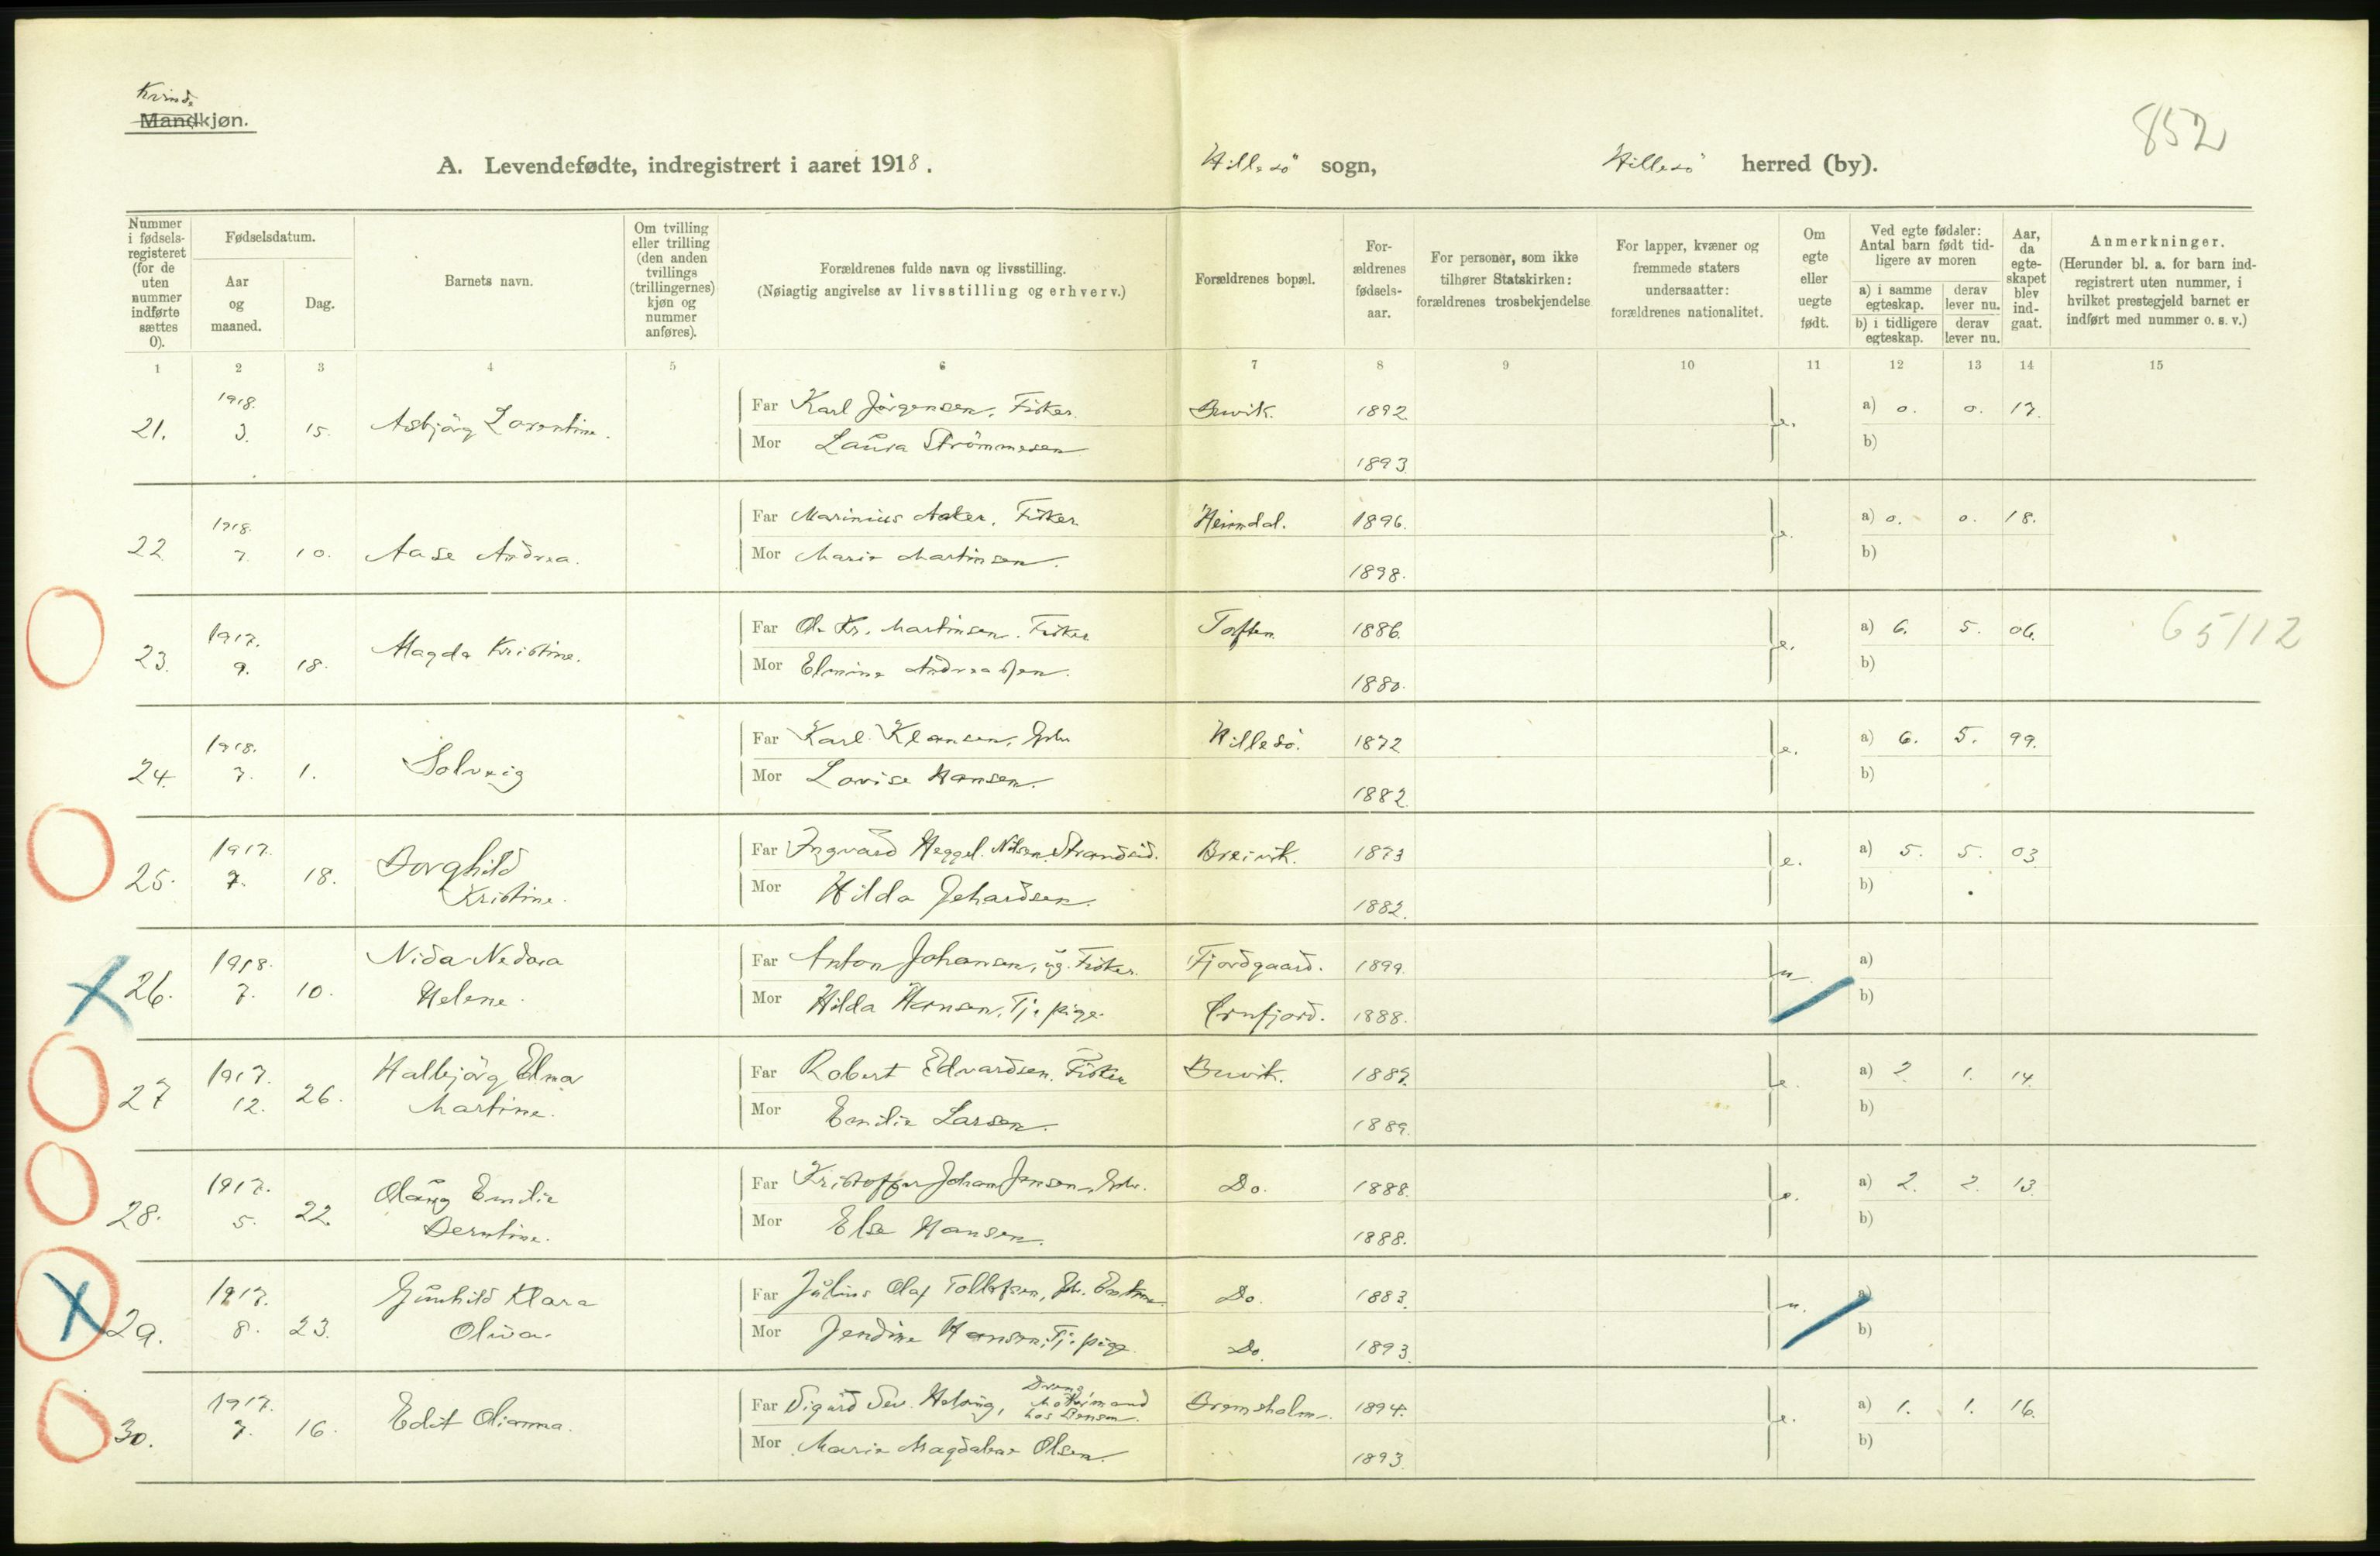 Kvinde
Mandkjøn.
852
A. Levendefødte, indregistrert i aaret 1918.
Hillesö sogn, Hillesö herred (by).
Nummer i fødsels-registeret (for de uten nummer indførte sættes 0).
Fødselsdatum.
Aar og maaned.
Dag.
Barnets navn.
Om tvilling eller trilling (den anden tvillings (trillingernes) kjøn og nummer anføres).
Forældrenes fulde navn og livsstilling.
(Nøiagtig angivelse av livsstilling og erhverv.)
Forældrenes bopæl.
For-ældrenes fødsels-aar.
For personer, som ikke tilhører Statskirken: forældrenes trosbekjendelse
For lapper, kvæner og fremmede staters undersaatter: forældrenes nationalitet.
Om egte eller uegte født.
Ved egte fødsler: Antal barn født tid-ligere av moren
a) i samme egteskap. derav lever nu.
b) i tidligere egteskap. derav lever nu.
Aar, da egte-skapet blev ind-gaat.
Anmerkninger.
(Herunder bl. a. for barn ind-registrert uten nummer, i hvilket prestegjeld barnet er indført med nummer o. s. v.)
1 2 3 4 5 6 7 8 9 10 11 12 13 14 15
21. 1918. 3. 15. Asbjörg Lorentine.
Far Karl Jörgensen, Fisker. Buvik. 1892. e. a) 0. 0. 17.
Mor Laura Strömmesen 1893. b)
22 1918. 7. 10. Aase Andrea.
Far Marinius Aaker, Fisker. Heimdal. 1896. e. a) 0. 0. 18.
Mor Marie Martinsen. 1898. b)
23. 1917. 9. 18. Magda Kristine.
Far Ol. Kr. Martinsen. Fisker Toften 1886. e. a) 6. 5. 06. 65/12
Mor Elmine Andreassen. 1880. b)
24. 1918. 7. 1. Solveig
Far Karl Klausen, Gbr. Hillesö. 1872 e. a) 6. 5. 99.
Mor Lovise Hansen. 1882. b)
25. 1917. 7. 18. Borghild Kristine.
Far Ingvard Heggel. Nilsen, Strandsid. Breivik. 1873 e. a) 5. 5. 03
Mor Hilda Gehardsen. 1882. b)
26. 1918. 7. 10. Nida Nedora Helene.
Far Anton Johansen, ug. Fisker. Fjordgaard. 1899. u. a)
Mor Hilda Hansen, Tj. pige. Ornfjord. 1888. b)
27 1917. 12. 26. Halbjörg Elna Martine.
Far Robert Edvardsen. Fisker Buvik. 1889. e. a) 2. 1. 14.
Mor Emilie Larsen. 1889. b)
28. 1917. 5. 22. Olaug Emilie Berntine.
Far Kristoffer Johan Jensen, Gbr. Do. 1888. e. a) 2. 2. 13.
Mor Else Hansen. 1888. b)
29. 1917. 8. 23. Gunhild Klara Oliva.
Far Julius Olaf Tollefsen, Gbr. Enkem. Do. 1883. u. a)
Mor Jendine Hansen, Tj. pige. Do. 1893. b)
30. 1917. 7. 16. Edit Olianna.
Far Sigurd Sev. Helsing, Dreng, Bremsholm. 1894. e. a) 1. 1. 16.
Mor Marie Magdalene Olsen. 1893. b)